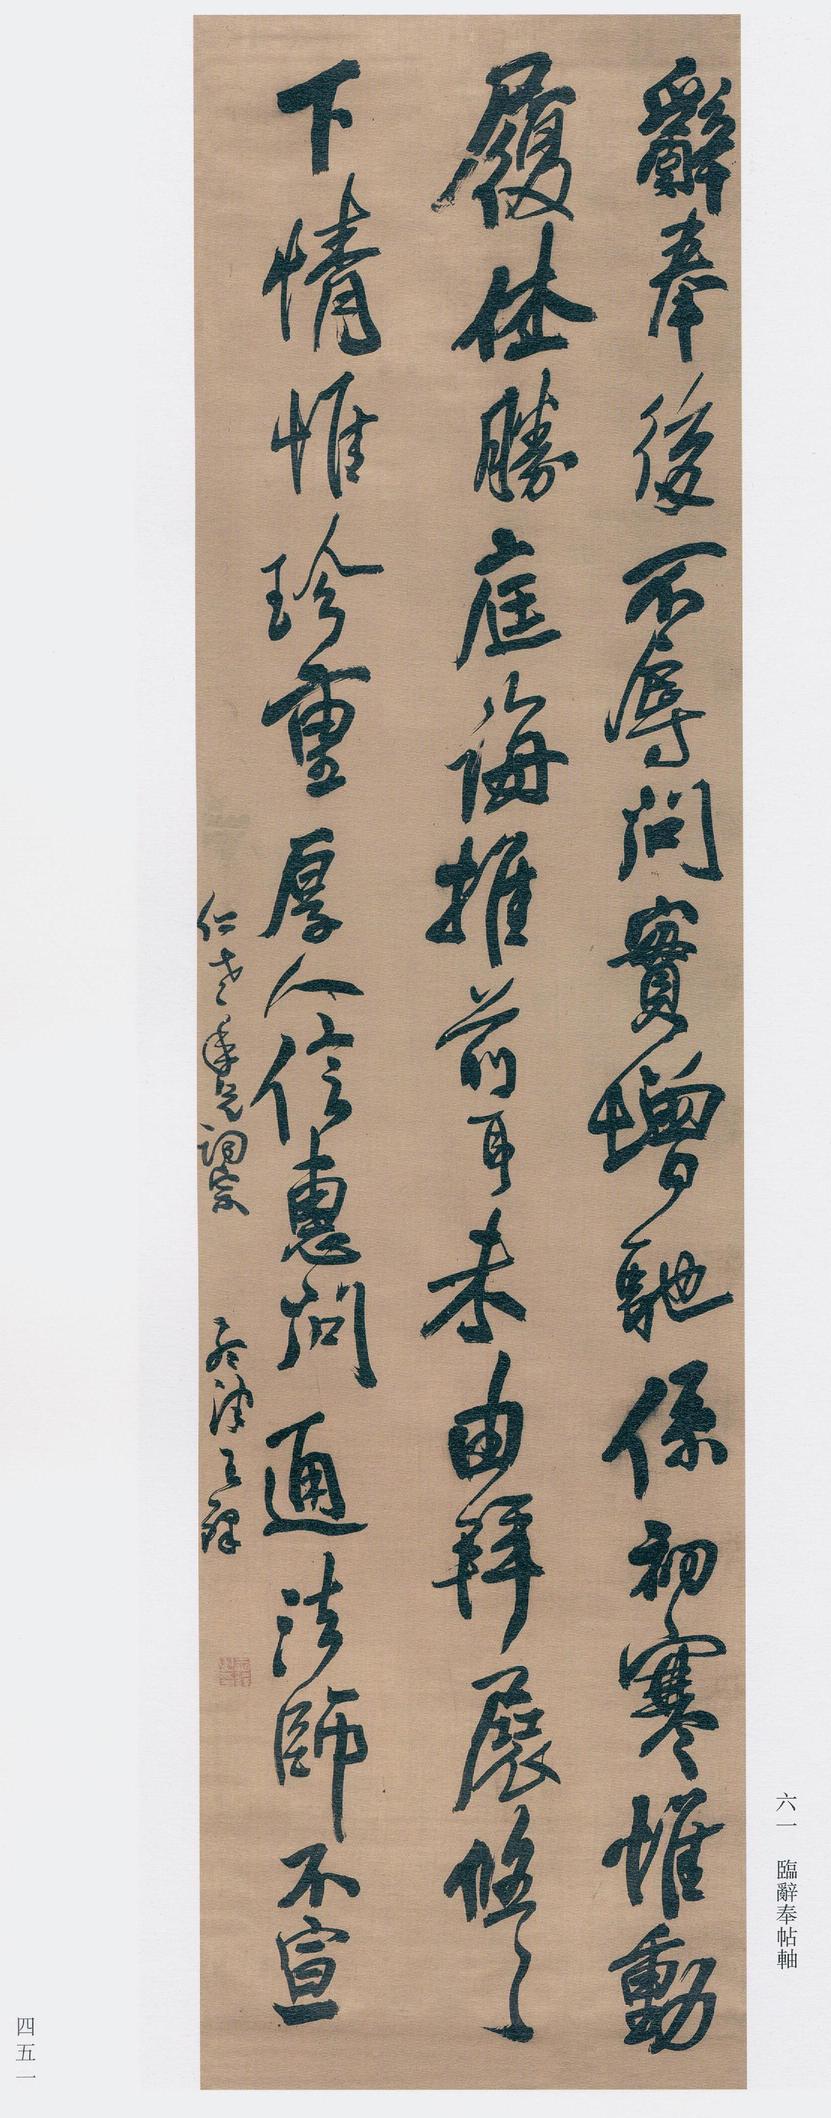 辭奉後不辱問實增馳係初寒惟動
履休勝庭誨推前耳未由拜展悠々
下情惟珍重厚人信惠問通法師不宣
仁老年兄詞宗
孟津王鐸
六一 臨辭奉帖軸
四五一